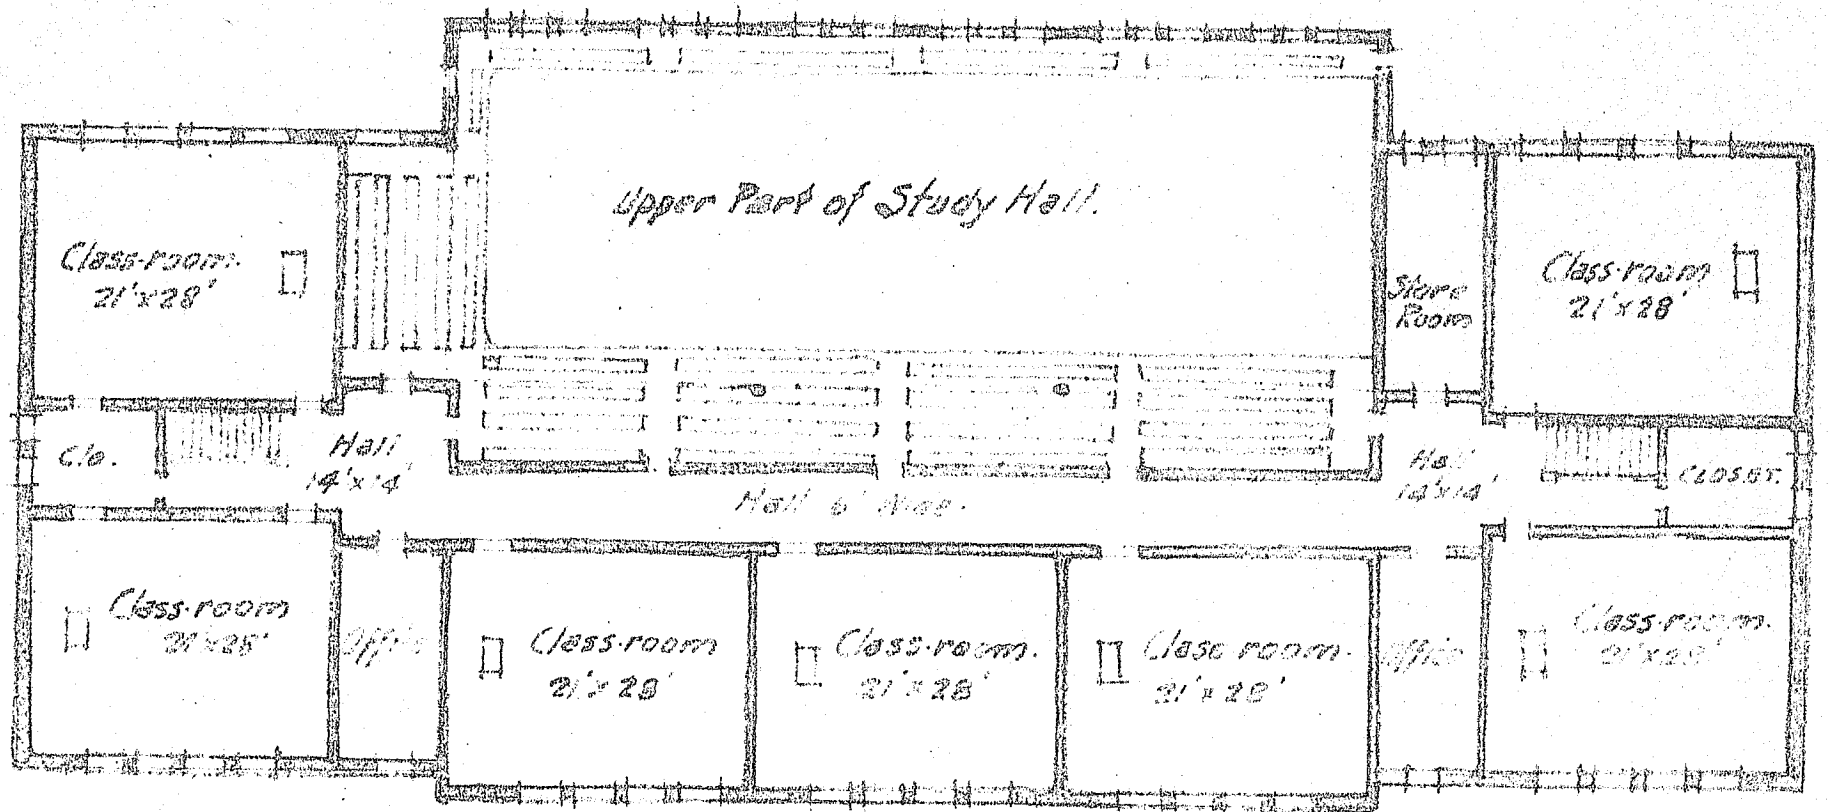 Upper Part of Study Hall.
Class-room.
21'x28'
Store
Room
Class-room
21'x28'
Clo.
Hall
14'x14'
Hall 6' Wide.
Hall
14'x14'
CLOSET.
Class-room
21'x28'
Office
Class-room
21'x28'
Class-room.
21'x28'
Class room.
21'x28'
Office
Class-room.
21'x28'